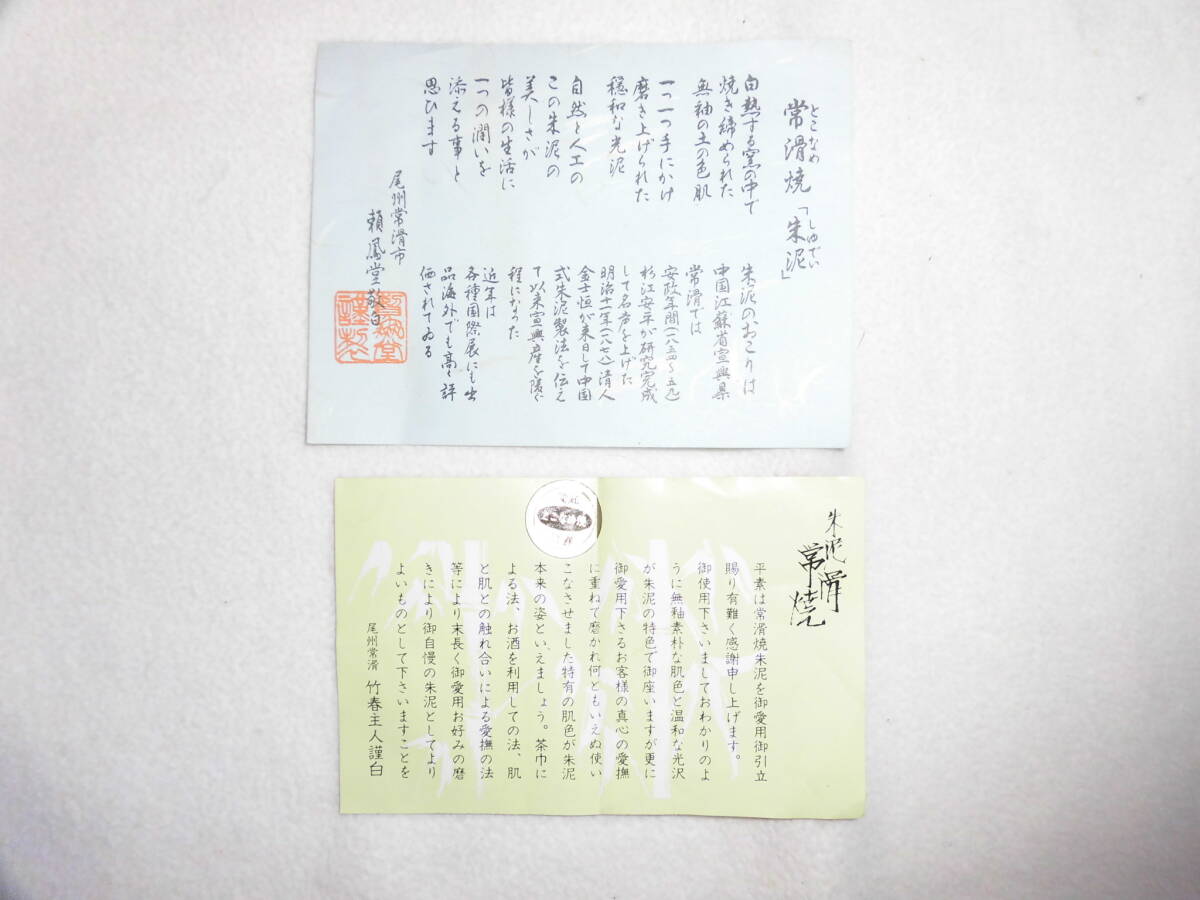 常滑焼「朱泥」
とこなめ
しゅでい
白熱する窯の中で
焼き締められた
無釉の土の色肌
一つ一つ手にかけ
磨き上げられた
穏和な光泥
自然と人工の
この朱泥の
美しさが
皆様の生活に
一つの潤いを
添える事と
思ひます
朱泥のおこりは
中国江蘇省宣興県
常滑では
安政年間(一八五四~五九)
杉江安平が研究完成
して名声を上げた
明治十一年(一八七八)清人
金士恒が来日して中国
式朱泥製法を伝え
て以来宣興産を凌ぐ
程になった
近年は
各種国際展にも出
品海外でも高く評
価されてゐる
尾州常滑市
頼鳳堂敬白
謹製
朱泥
常滑
焼
平素は常滑焼朱泥を御愛用御引立
賜り有難く感謝申し上げます。
御使用下さいましておわかりのよ
うに無釉素朴な肌色と温和な光沢
が朱泥の特色で御座いますが更に
御愛用下さるお客様の真心の愛撫
に重ねて磨かれ何ともいえぬ使い
こなさせました特有の肌色が朱泥
本来の姿といえましょう。茶巾に
よる法、お酒を利用しての法、肌
と肌との触れ合いによる愛撫の法
等により末長く御愛用お好みの磨
きにより御自慢の朱泥としてより
よいものとして下さいますことを
尾州常滑 竹春主人謹白